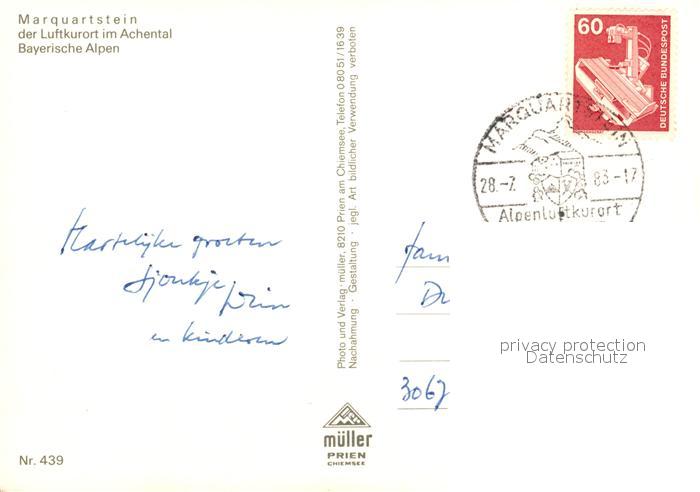 Marquartstein
der Luftkurort im Achental
Bayerische Alpen
60
DEUTSCHE BUNDESPOST
MARQUARTSTEIN
28.-7. 83-17
Alpenluftkurort
Hartelijke groeten
Sjoukje, Wim
en kinderen
Photo und Verlag · müller, 8210 Prien am Chiemsee, Telefon 0 80 51 / 16 39
Nachahmung · Gestaltung · jegl. Art bildlicher Verwendung verboten
Fam
Dr
3067
privacy protection
Datenschutz
müller
PRIEN
CHIEMSEE
Nr. 439